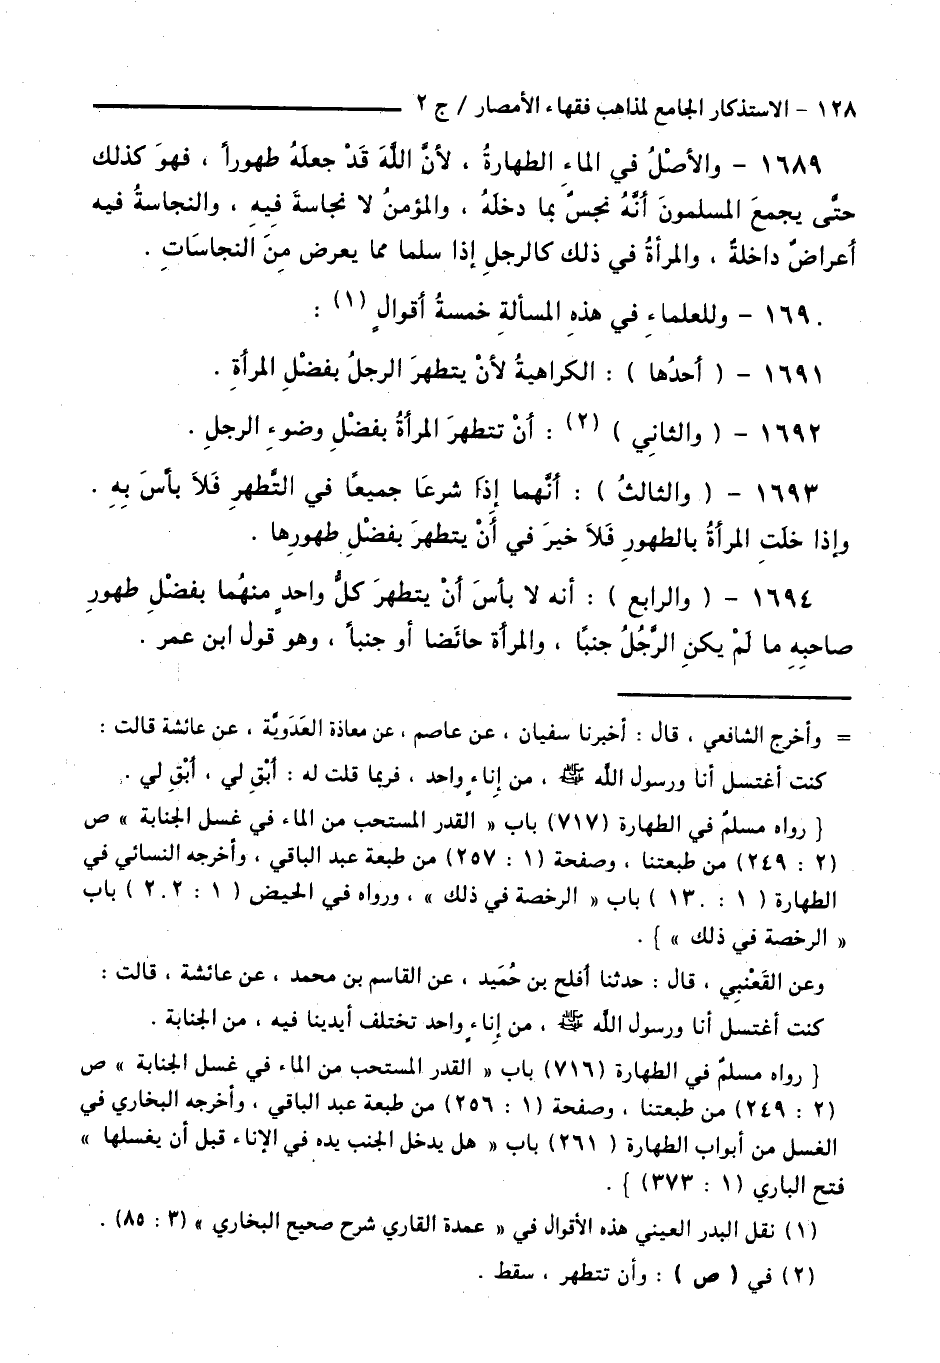 ١٢٨ - الاستذكار الجامع لمذاهب فقهاء الأمصار / ج ٢
١٦٨٩ - والأصْلُ في الماءِ الطهارةُ ، لأنَّ اللَّهَ قَدْ جعلَهُ طهوراً ، فهوَ كذلك
حتَّى يجمعَ المسلمونَ أنَّهُ نجسٌ بما دخلَهُ ، والمؤمنُ لا نجاسةَ فيهِ ، والنجاسةُ فيه
أعراضٌ داخلةٌ ، والمرأةُ في ذلك كالرجلِ إذا سلما مما يعرض مِنَ النجاسَاتِ .
١٦٩٠ - وللعلماءِ في هذهِ المسألةِ خمسةُ أقوالٍ (١) :
١٦٩١ - ( أحدُها ) : الكراهيةُ لأنْ يتطهرَ الرجلُ بفضْلِ المرأةِ .
١٦٩٢ - ( والثاني ) (٢) : أنْ تتطهرَ المرأةُ بفضْلِ وضوءِ الرجلِ .
١٦٩٣ - ( والثالثُ ) : أنَّهما إذَا شرعَا جميعًا في التَّطهرِ فَلاَ بأسَ بِهِ .
وإذا خلَتِ المرأةُ بالطهورِ فَلاَ خيرَ في أنْ يتطهرَ بفضْلِ طهورِها .
١٦٩٤ - ( والرابع ) : أنه لا بأسَ أنْ يتطهرَ كلُّ واحدٍ منهُما بفضْلِ طهورِ
صاحبِهِ ما لَمْ يكنِ الرَّجُلُ جنبًا ، والمرأة حائضا أو جنباً ، وهو قول ابن عمر .
= وأخرج الشافعي ، قال : أخبرنا سفيان ، عن عاصم ، عن معاذة العَدَويَّة ، عن عائشة قالت :
كنت أغتسل أنا ورسول اللَّه ﷺ ، من إناءٍ واحد ، فربما قلت له : أبْقِ لي ، أبْقِ لي .
{ رواه مسلمٌ في الطهارة (٧١٧) باب « القدر المستحب من الماء في غسل الجنابة » ص
(٢ : ٢٤٩) من طبعتنا ، وصفحة (١ : ٢٥٧) من طبعة عبد الباقي ، وأخرجه النسائي في
الطهارة ( ١ : ١٣٠ ) باب « الرخصة في ذلك » ، ورواه في الحيض ( ١ : ٢٠٢ ) باب
« الرخصة في ذلك » } .
وعن القَعْنبي ، قال : حدثنا أفلح بن حُمَيد ، عن القاسم بن محمد ، عن عائشة ، قالت :
كنت أغتسل أنا ورسول اللَّه ﷺ ، من إناءٍ واحد تختلف أيدينا فيه ، من الجنابة .
{ رواه مسلمٌ في الطهارة (٧١٦) باب « القدر المستحب من الماء في غسل الجنابة » ص
(٢ : ٢٤٩) من طبعتنا ، وصفحة (١ : ٢٥٦) من طبعة عبد الباقي ، وأخرجه البخاري في
الغسل من أبواب الطهارة ( ٢٦١) باب « هل يدخل الجنب يده في الإناء قبل أن يغسلها »
فتح الباري (١ : ٣٧٣) } .
(١) نقل البدر العيني هذه الأقوال في « عمدة القاري شرح صحيح البخاري » (٣ : ٨٥) .
(٢) في ( ص ) : وأن تتطهر ، سقط .